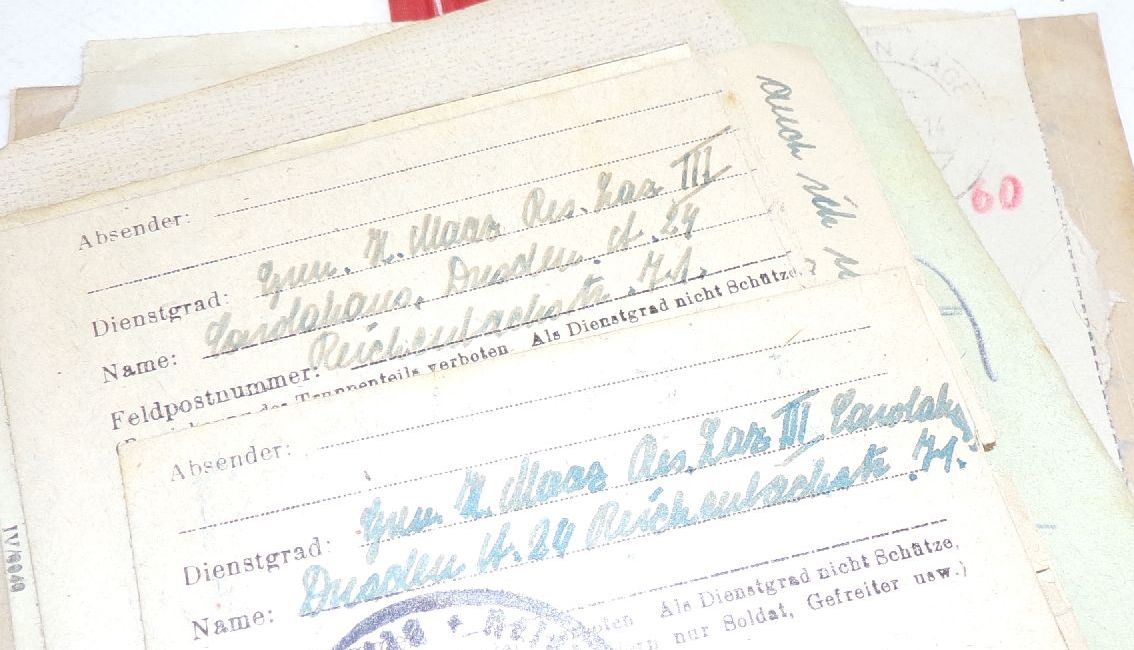 60
auch sich
Absender:
Gren. K. Maaz Res. Laz III
Dienstgrad: Carolahaus, Dresden. A. 24
Name: Reichenbachstr. 71.
Feldpostnummer:
Truppenteils verboten Als Dienstgrad nicht Schütze,
Absender:
Gren. K. Maaz Res. Laz III Carolah
Dienstgrad: Dresden A. 24 Reichenbachstr. 71.
Name:
Als Dienstgrad nicht Schütze,
nur Soldat, Gefreiter usw.)